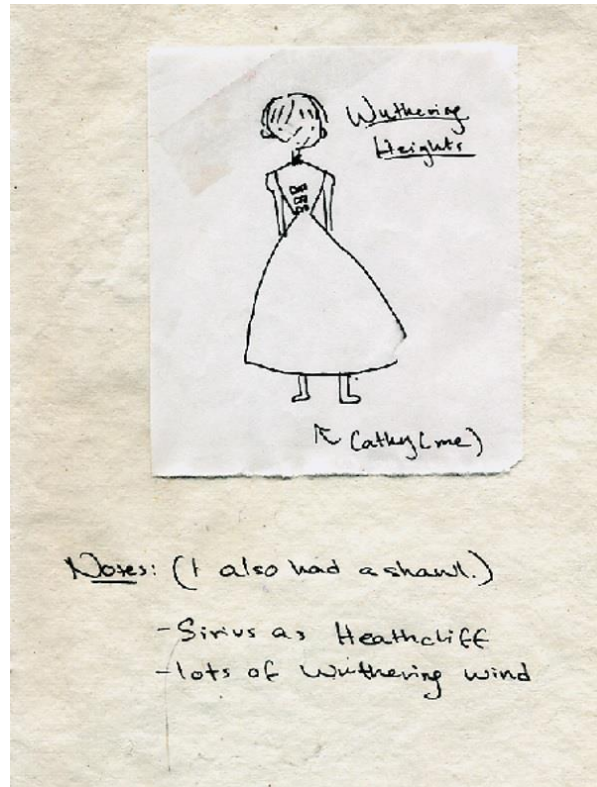 Wuthering
Heights
Cathy (me)
Notes: (I also had a shawl.)
-Sirius as Heathcliff
-lots of Wuthering wind